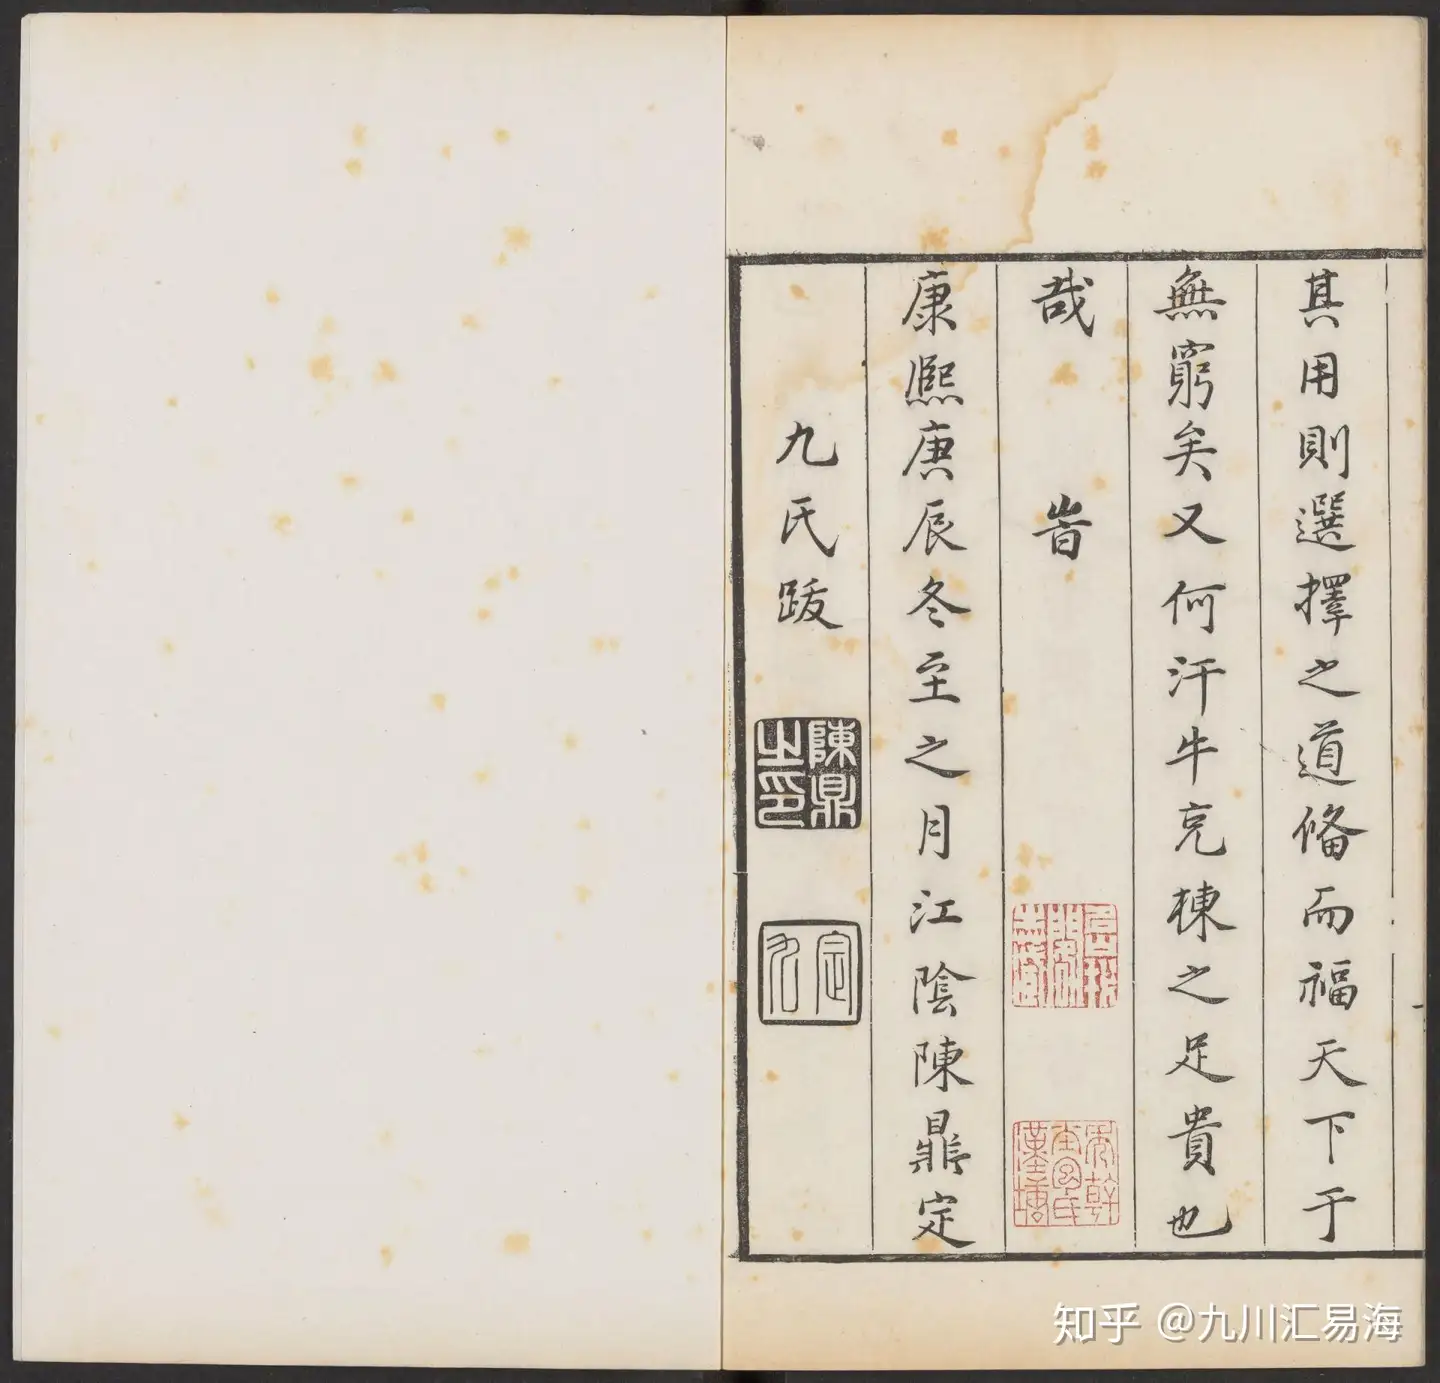 其用則選擇之道偹而福天下于
無窮矣又何汗牛充棟之足貴也
哉　旹
康熙庚辰冬至之月江陰陳鼎定
九氏跋
陳鼎之印
定九
知乎 @九川汇易海